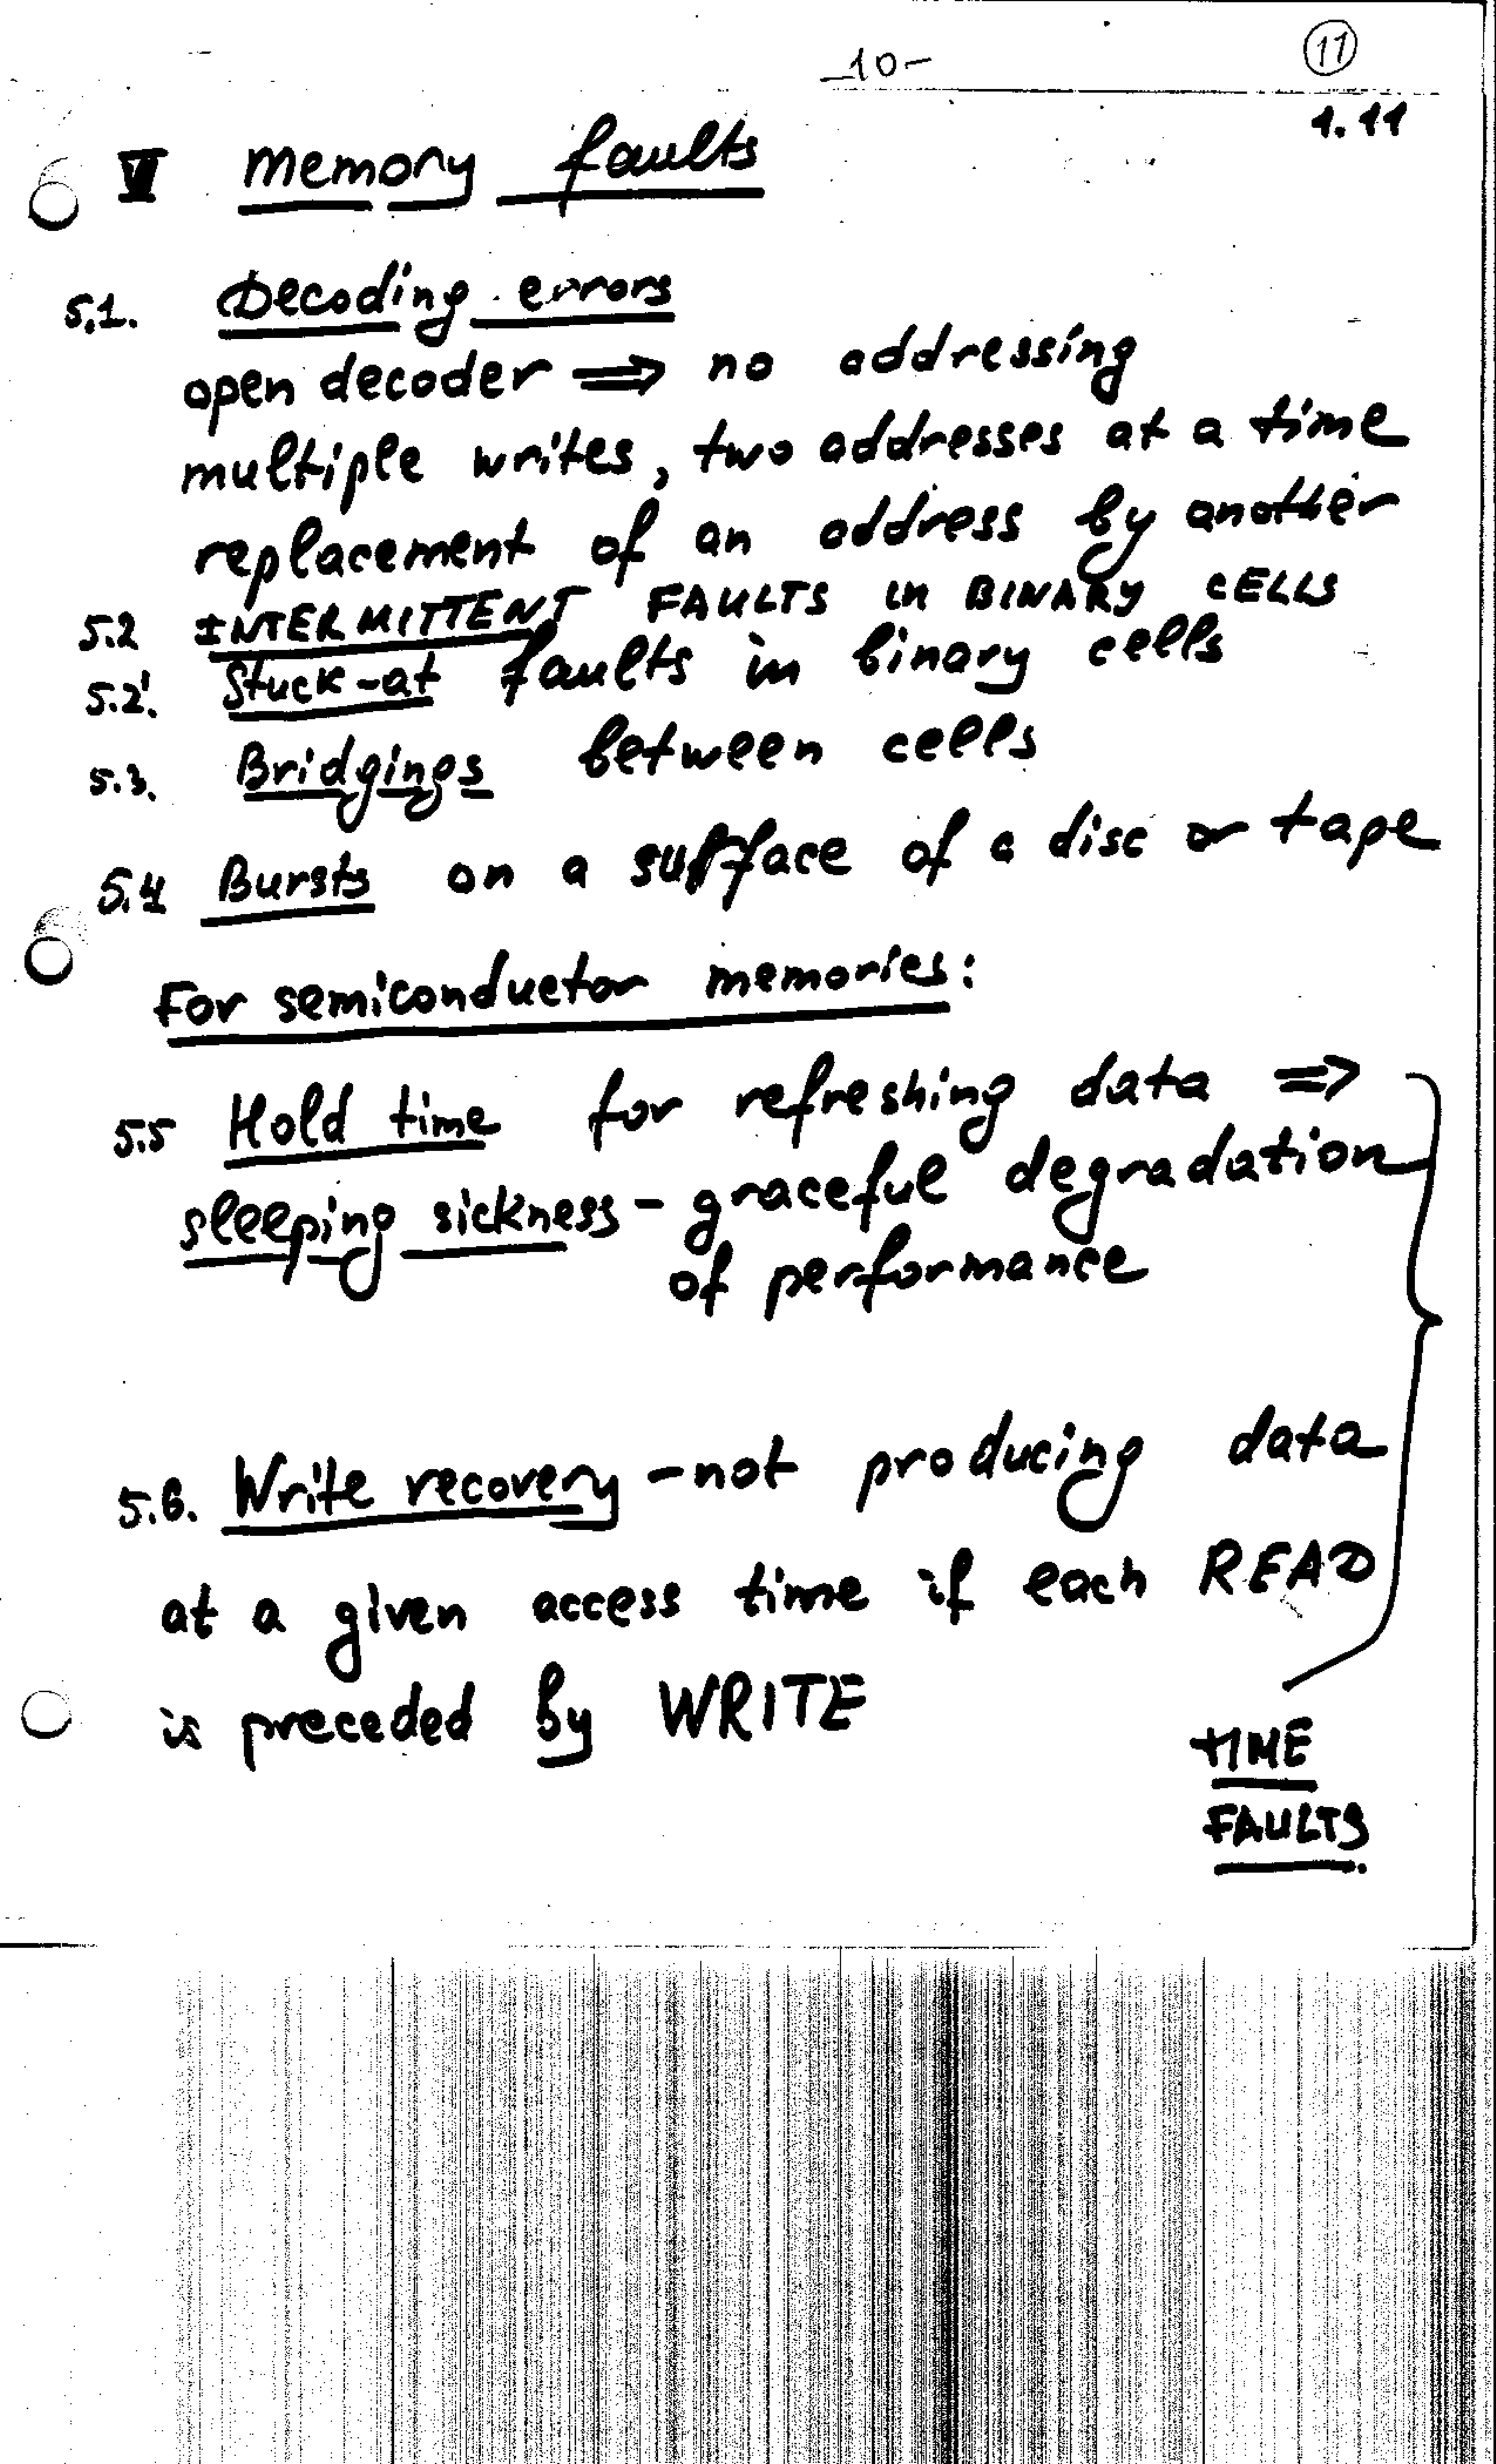 -10-
11
1.11
V Memory faults
5.1. Decoding errors
open decoder ⇒ no addressing
multiple writes, two addresses at a time
replacement of an address by another
5.2 INTERMITTENT FAULTS in BINARY CELLS
5.2'. Stuck-at faults in binary cells
5.3. Bridgings between cells
5.4 Bursts on a surface of a disc or tape
For semiconductor memories:
5.5 Hold time for refreshing data ⇒
sleeping sickness - graceful degradation
of performance
5.6. Write recovery - not producing data
at a given access time if each READ
is preceded by WRITE
TIME
FAULTS.